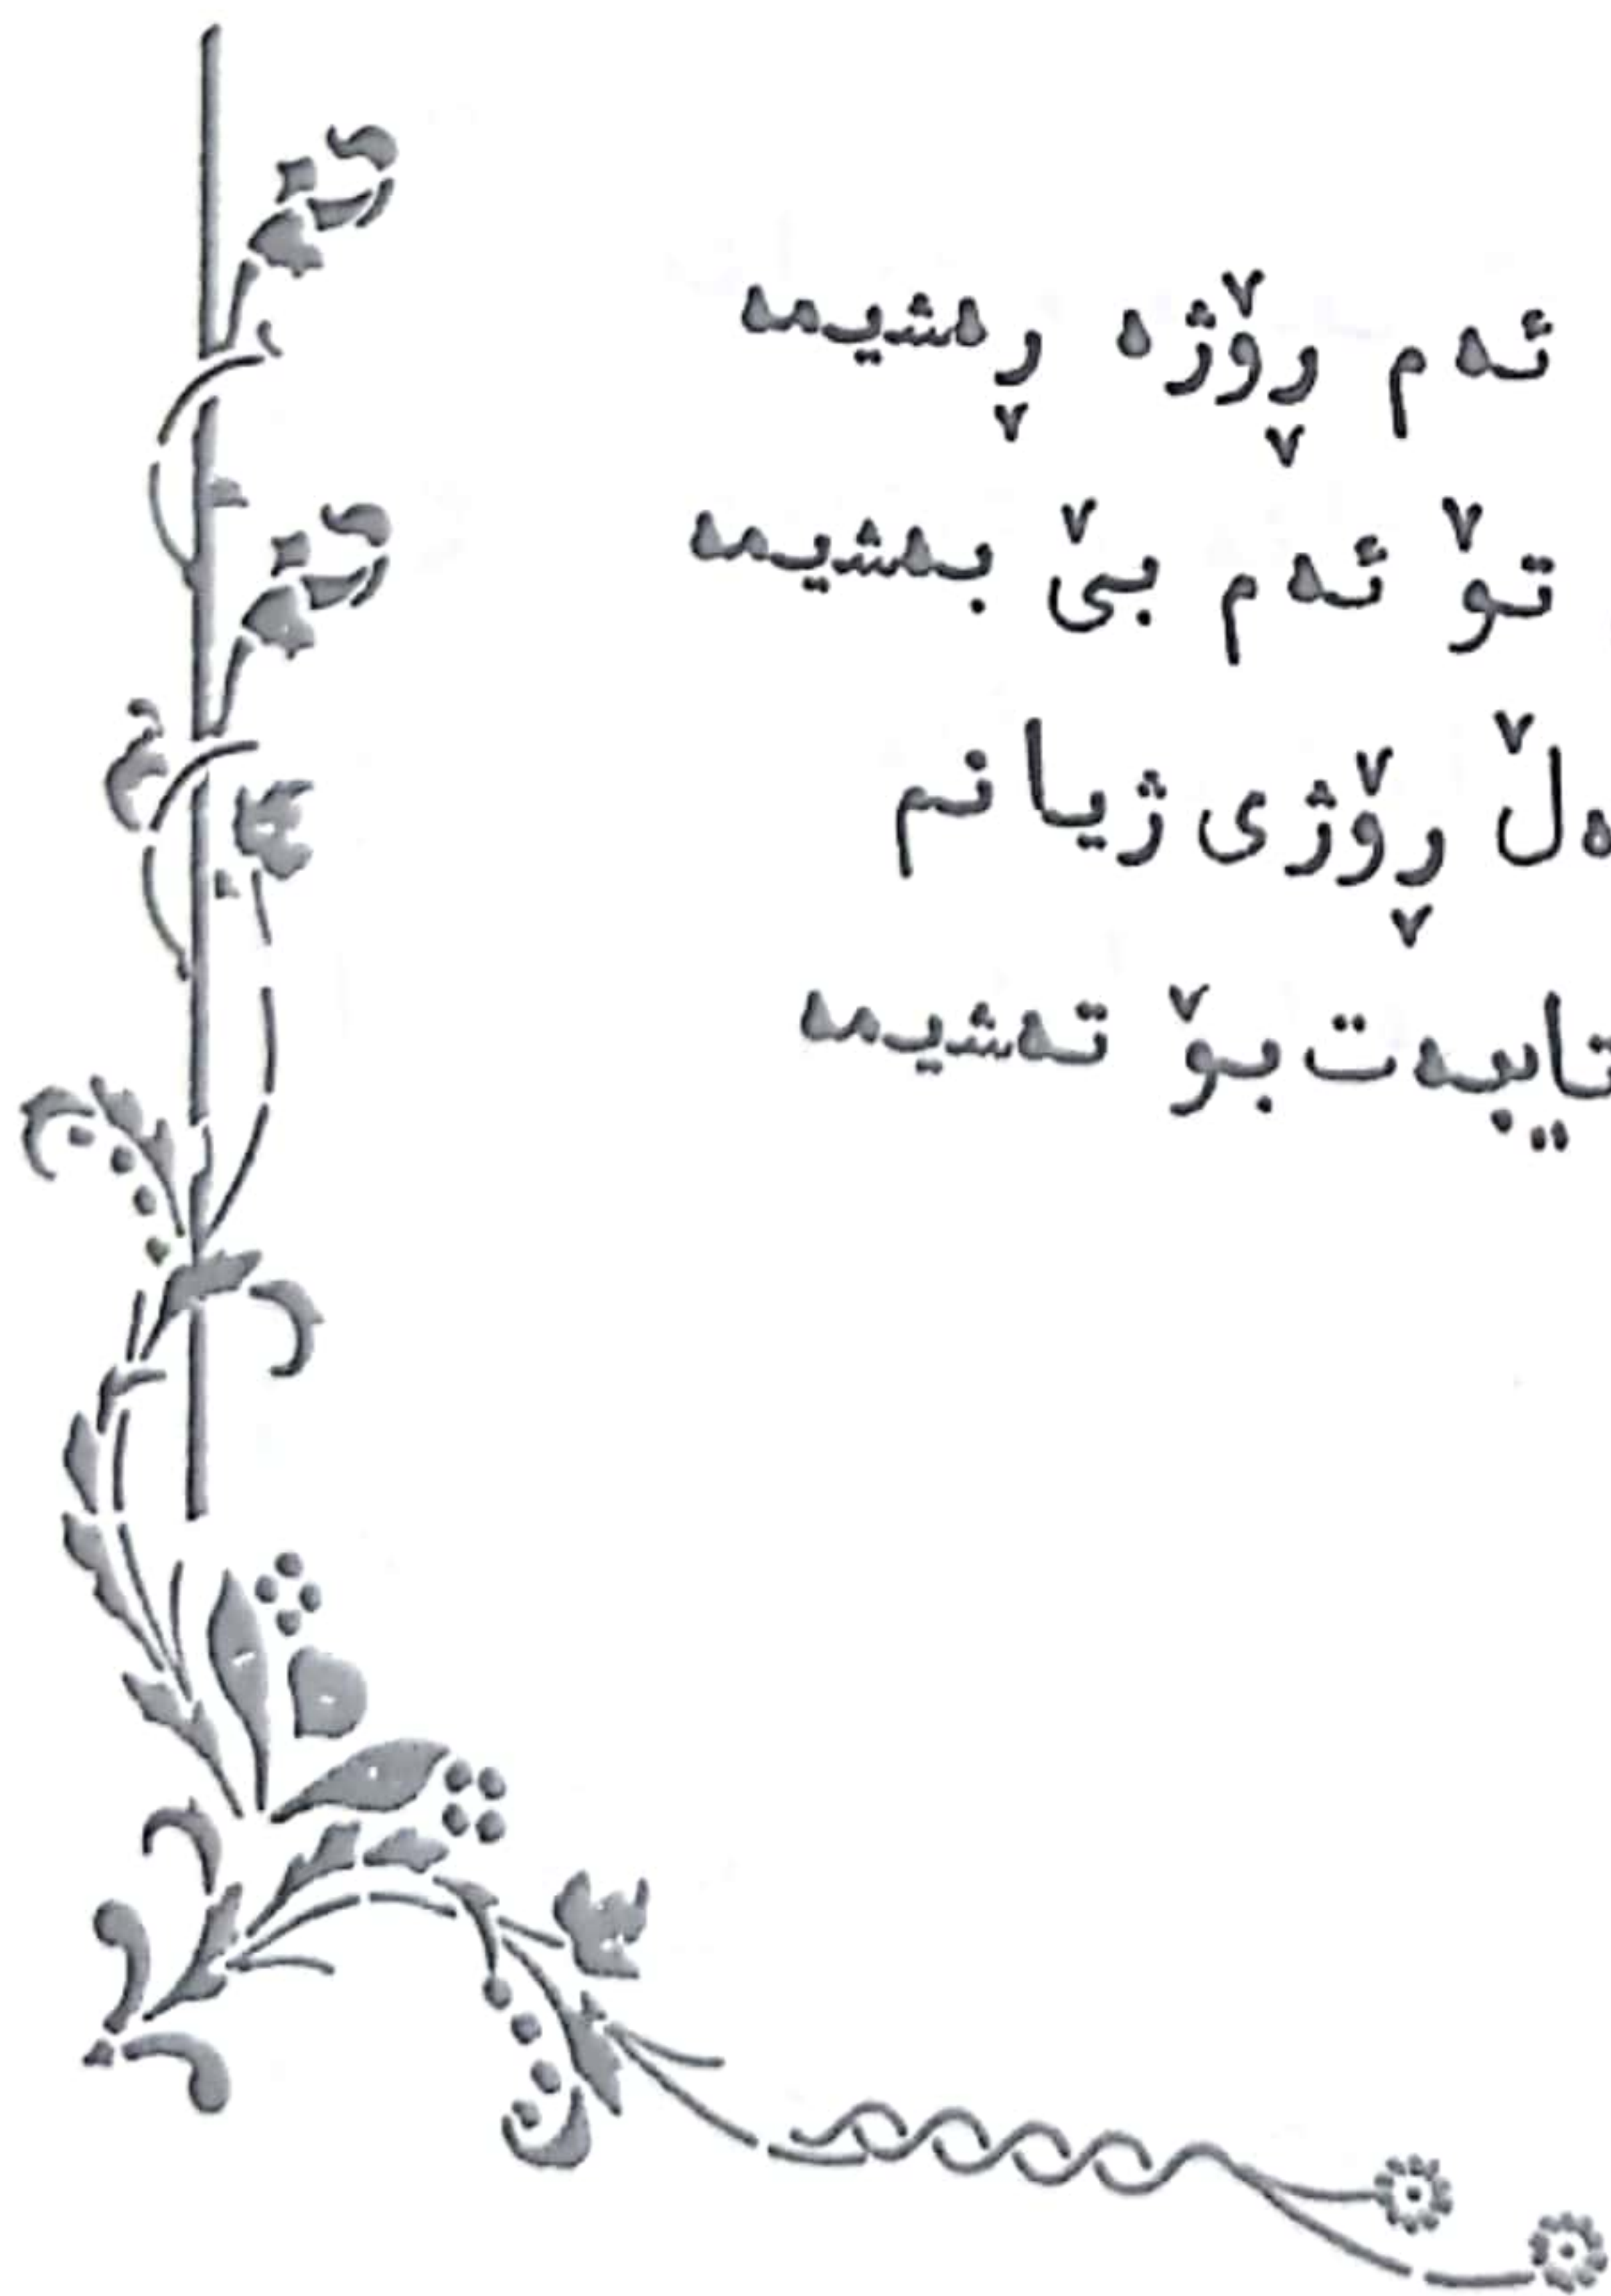 ئەم ڕۆژە ڕەشیمە
تۆ ئەم بێ بەشیمە
ەڵ ڕۆژی ژیانم
تایبەت بۆ تەشیمە